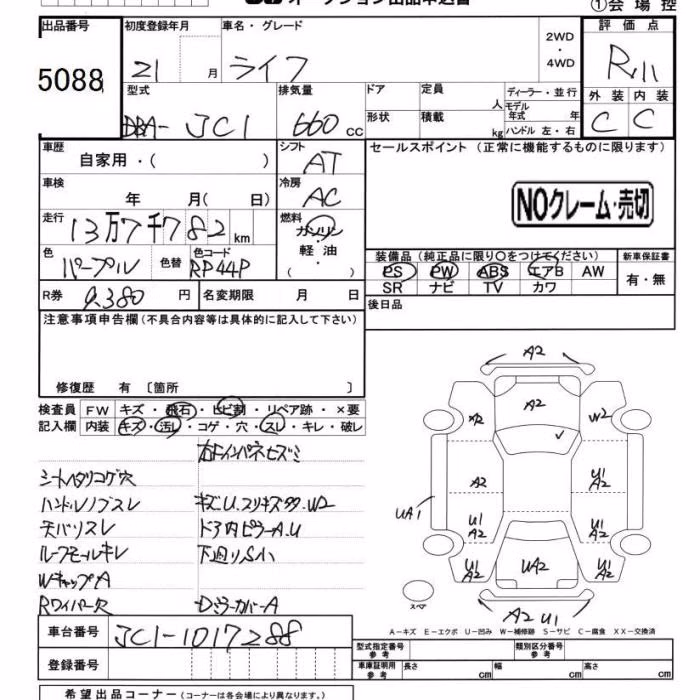 オークション出品申込書
①会場控
出品番号
5088
初度登録年月
21 月
車名・グレード
ライフ
2WD
・
4WD
評価点
R
外装 内装
C C
型式
DBA-JC1
排気量
660 cc
ドア
定員
人
形状
積載
kg
ディーラー・並行
モデル年式 年
ハンドル 左・右
車歴
自家用・( )
シフト
AT
セールスポイント (正常に機能するものに限ります)
NOクレーム・売切
車検
年 月( 日)
冷房
AC
走行
13万7千782 km
燃料
ガソリン
・
軽油
( )
色
パープル
色替
色コード
RP44P
装備品(純正品に限り〇をつけてください)
PS PW ABS エアB AW
SR ナビ TV カワ
新車保証書
有・無
R券
9,380 円
名変期限 月 日
後日品
注意事項申告欄(不具合内容等は具体的に記入して下さい)
修復歴 有 〔箇所 〕
検査員記入欄
FW キズ・飛石・ヒビ割・リペア跡・×要
内装 キズ・汚レ・コゲ・穴・スレ・キレ・破レ
右Fインパネヒズミ
シートヘタリコゲ穴
ハンドルノブスレ キズ.U.スリキズ多.W2
天バリスレ ドア内ピラーA.U
ルーフモールキレ 下廻りS小
WキャップA
Rワイパー欠 DミラーカバーA
A2
A2
W2
A2
U1
A2
UA1
U1
A2
U1
A2
U1
A2
UA2
U1
A2
スペア
A2 U1
A-キズ E-エクボ U-凹み W-補修跡 S-サビ C-腐食 XX-交換済
車台番号
JC1-1017288
登録番号
型式指定番号
参考
類別区分番号
参考
車庫証明用
参考
長さ cm 幅 cm 高さ cm
希望出品コーナー(コーナーは各会場により異なります。)